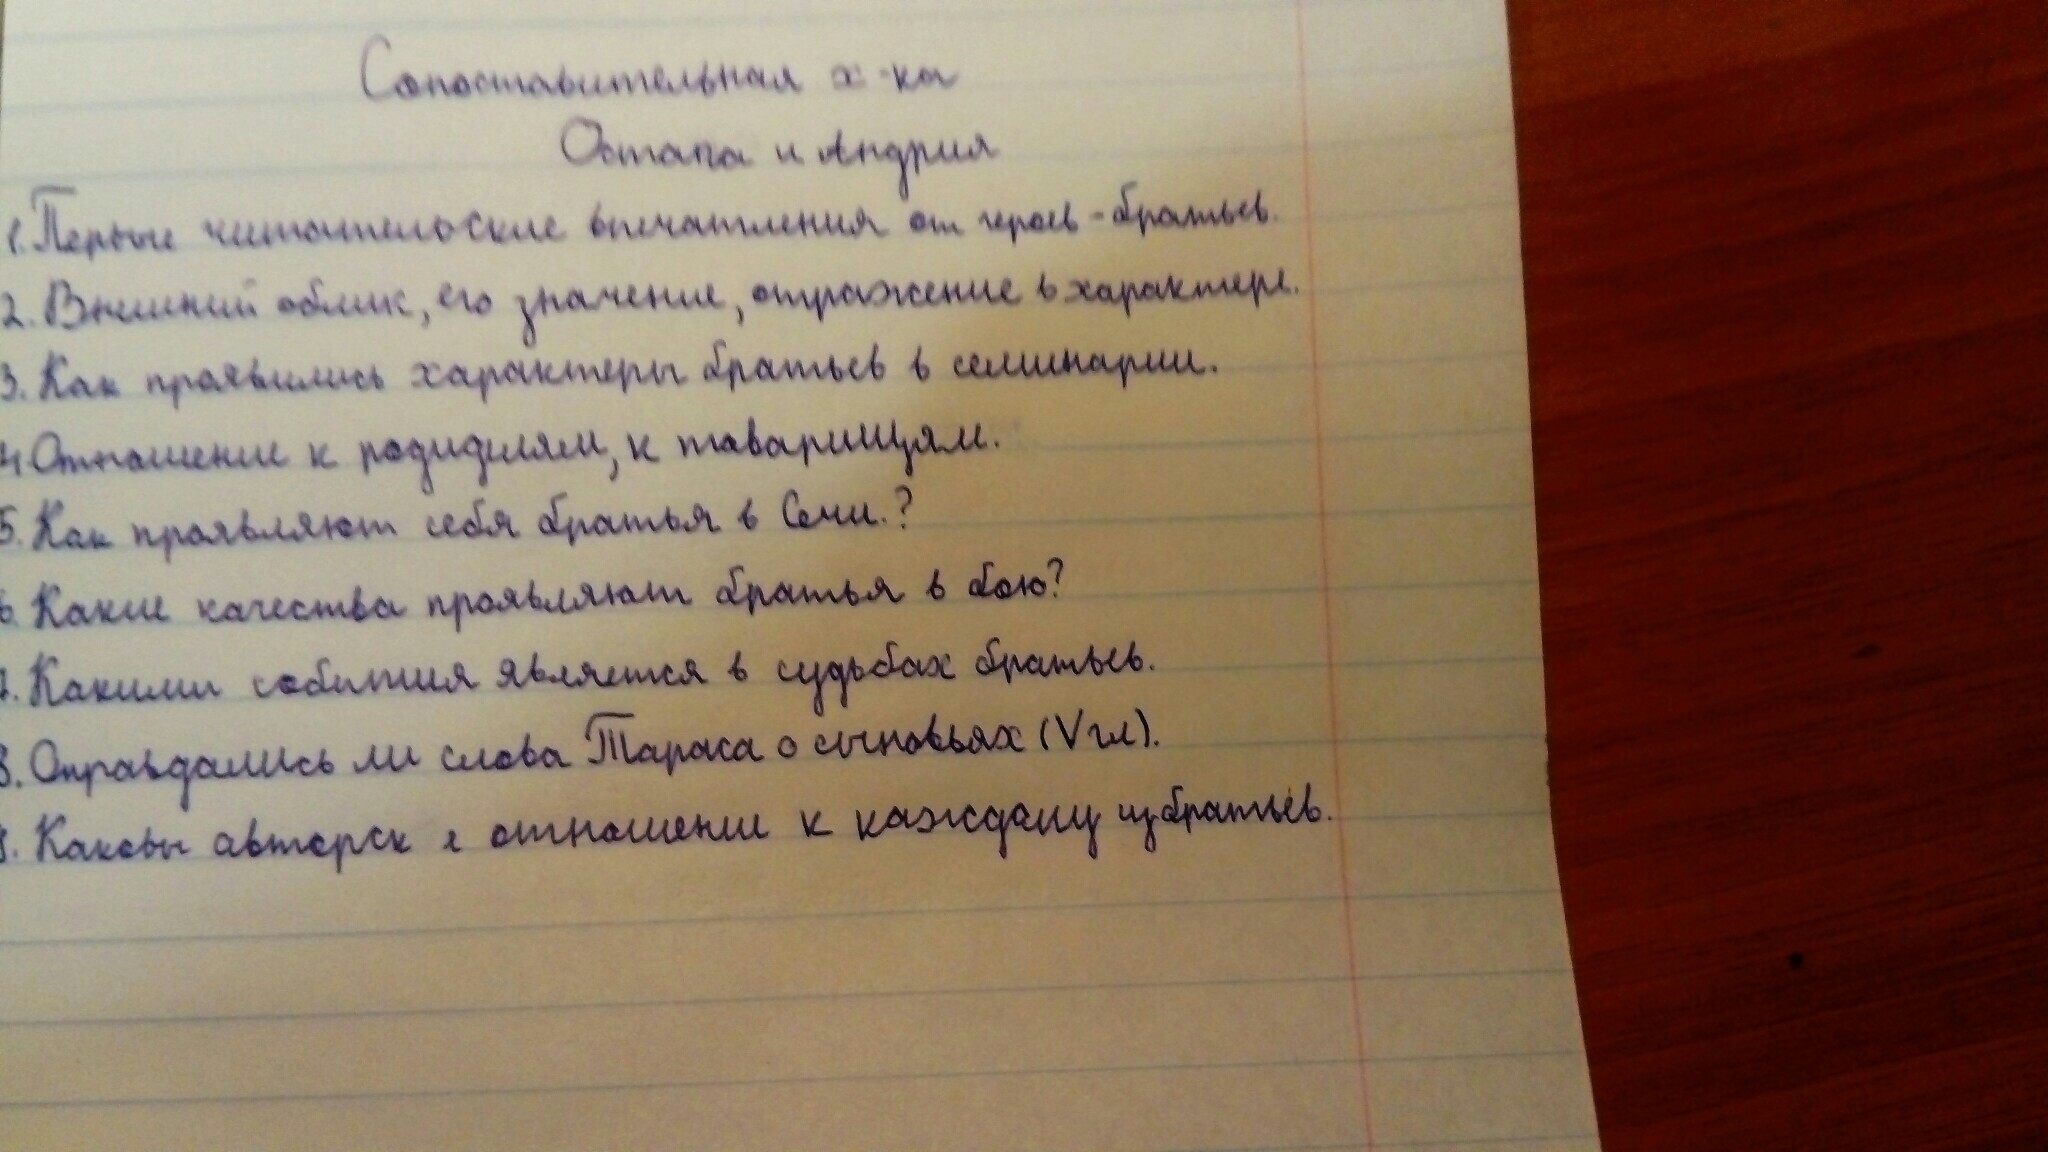 Сопоставительная х-ка
Остапа и Андрия
1. Первые читательские впечатления от героев-братьев.
2. Внешний облик, его значение, отражение в характере.
3. Как проявились характеры братьев в семинарии.
4. Отношение к родидилям, к товарищям.
5. Как проявляют себя братья в Сечи.?
6. Какие качества проявляют братья в бою?
7. Какими события является в судьбах братьев.
8. Оправдались ли слова Тараса о сыновьях (V гл).
9. Каковы авторск е отношение к каждому из братьев.